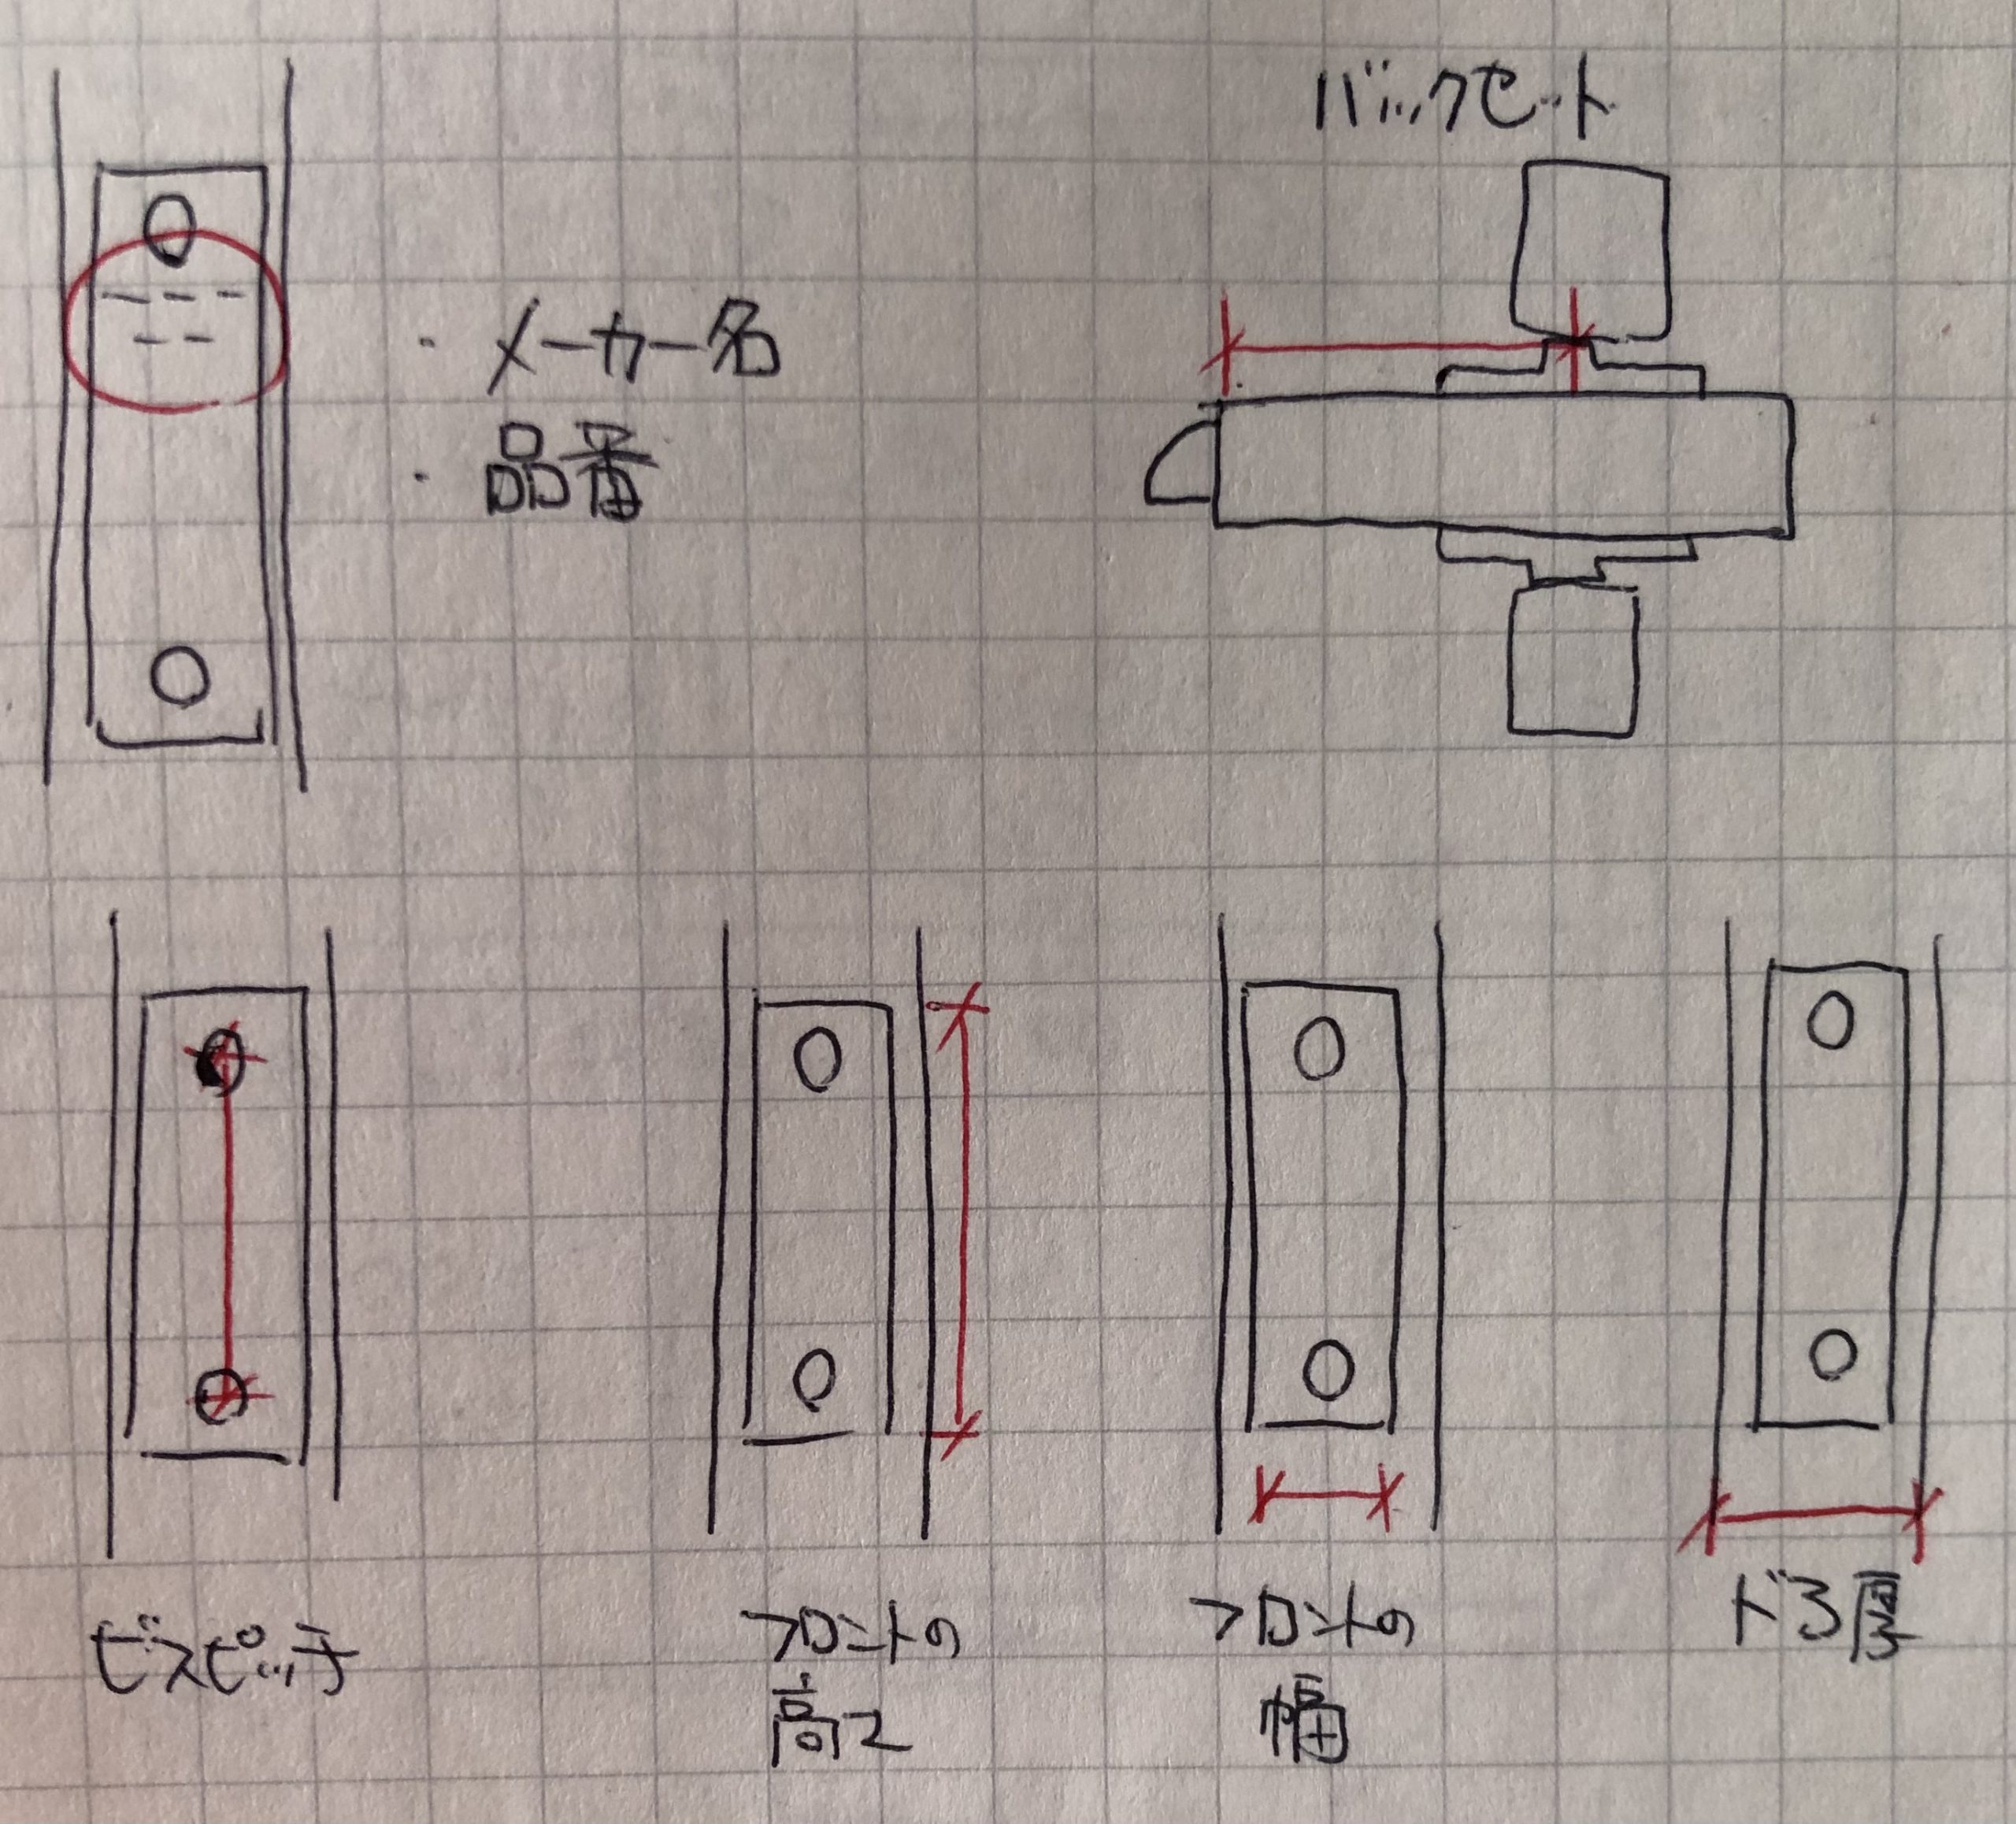 バックセット
・メーカー名
・品番
ビスピッチ
フロントの
高さ
フロントの
幅
ドア厚